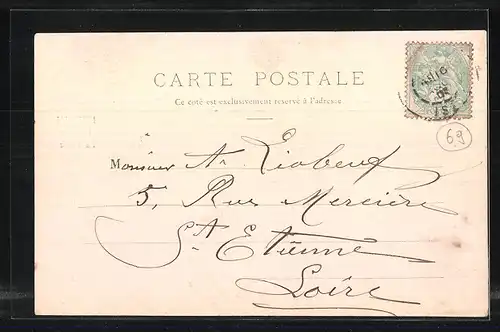 CARTE POSTALE
Ce coté est exclusivement reservé à l'adresse
Monsieur A.
5, Rue Mercière
St Etienne
Loire
69